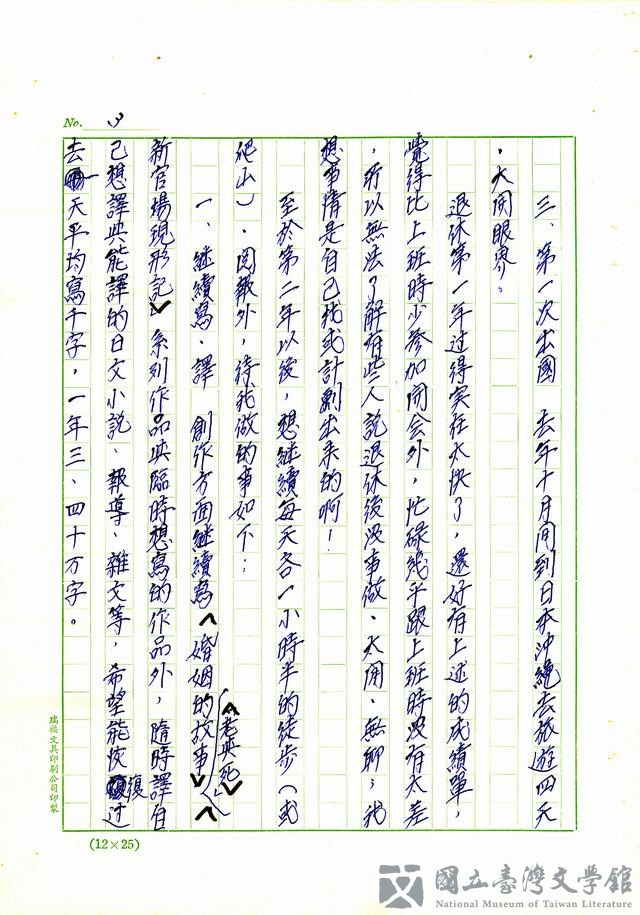 No. 3
三、第一次出國 去年十月間到日本沖繩去旅遊四天
，大開眼界。
退休第一年过得实在太快了，還好有上述的成績單，
覺得比上班時少參加開会外，忙碌幾乎跟上班時沒有太差
，所以無法了解有些人說退休後沒事做、太閒、無聊；我
想事情是自己找或計劃出来的啊！
至於第二年以後，想継續每天各一小時半的徒步（或
爬山）、閱報外，待我做的事如下：
一、継續寫、譯 創作方面継續寫〈婚姻的故事〉、
〈老與死〉、〈
新官場現形記〉系列作品與臨時想寫的作品外，隨時譯自
己想譯與能譯的日文小說、報導、雜文等，希望能恢復过
去一天平均寫千字，一年三、四十万字。
瑞祺文具印刷公司印製
(12×25)
國立臺灣文學館
National Museum of Taiwan Literature